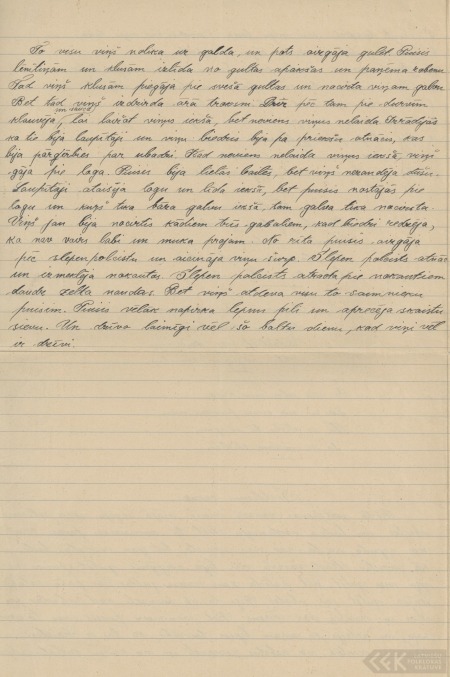 To visu viņš nolika uz galda, un pats aizgāja gulēt. Puisis
lēnītiņām un klusām izlīda no gultas apakšas un paņēma zobenu
Tad viņš klusām piegāja pie sveša gultas un nocirta viņam galvu
un sievu
Bet tad viņš izdzirda ārā troksni. Drīz pēc tam pie durvīm
klauvēja, lai laižat viņus iekšā, bet neviens viņus nelaida. Izrādījās
ka tie bija laupītāji un viņu biedris bija pa priekšu atnācis, kas
bija pārģērbies par ubadzi. Kad neviens nelaida viņus iekšā, viņi
gāja pie loga. Puisis bija lielās bailēs, bet viņš nezaudēja dūšu.
Laupītāji attaisīja logu un līda iekšā, bet puisis nostājās pie
loga un kurš tika bāza galvu iekšā, tam galva tika nocirsta
Viņš jau bija nocirtis kādiem trīs gabaliem, kad biedri redzēja,
ka nav vairs labi un muka projām. No rīta puisis aizgāja
pēc slepenpolicistu un aicināja viņu šurp. Slepen policists atnāca
un izmeklēja nokautos. Slepen policists atrada pie nokautiem
daudz zelta naudas. Bet viņš atdeva visu to saimnieku
puisim. Puisis vēlāk nopirka lepnu pili un apprecēja skaistu
sievu. Un dzīvo laimīgi vēl šo baltu dienu, kad viņi vēl
ir dzīvi.
LFK